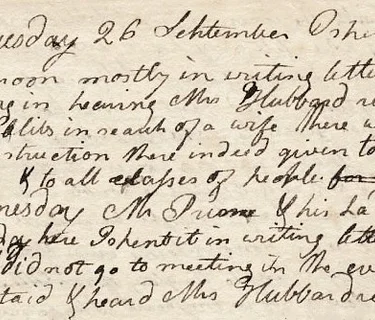 uesday 26 September I spe
noon mostly in writing lette
g in hearing Mrs Hubbard re
Cœlibs in search of a wife There a
struction there indeed given to
& to all classes of people for
nesday Mr Prime & his La
day here I spent it in writing lett
did not go to meeting in the eve
staid & heard Mrs Hubbard re